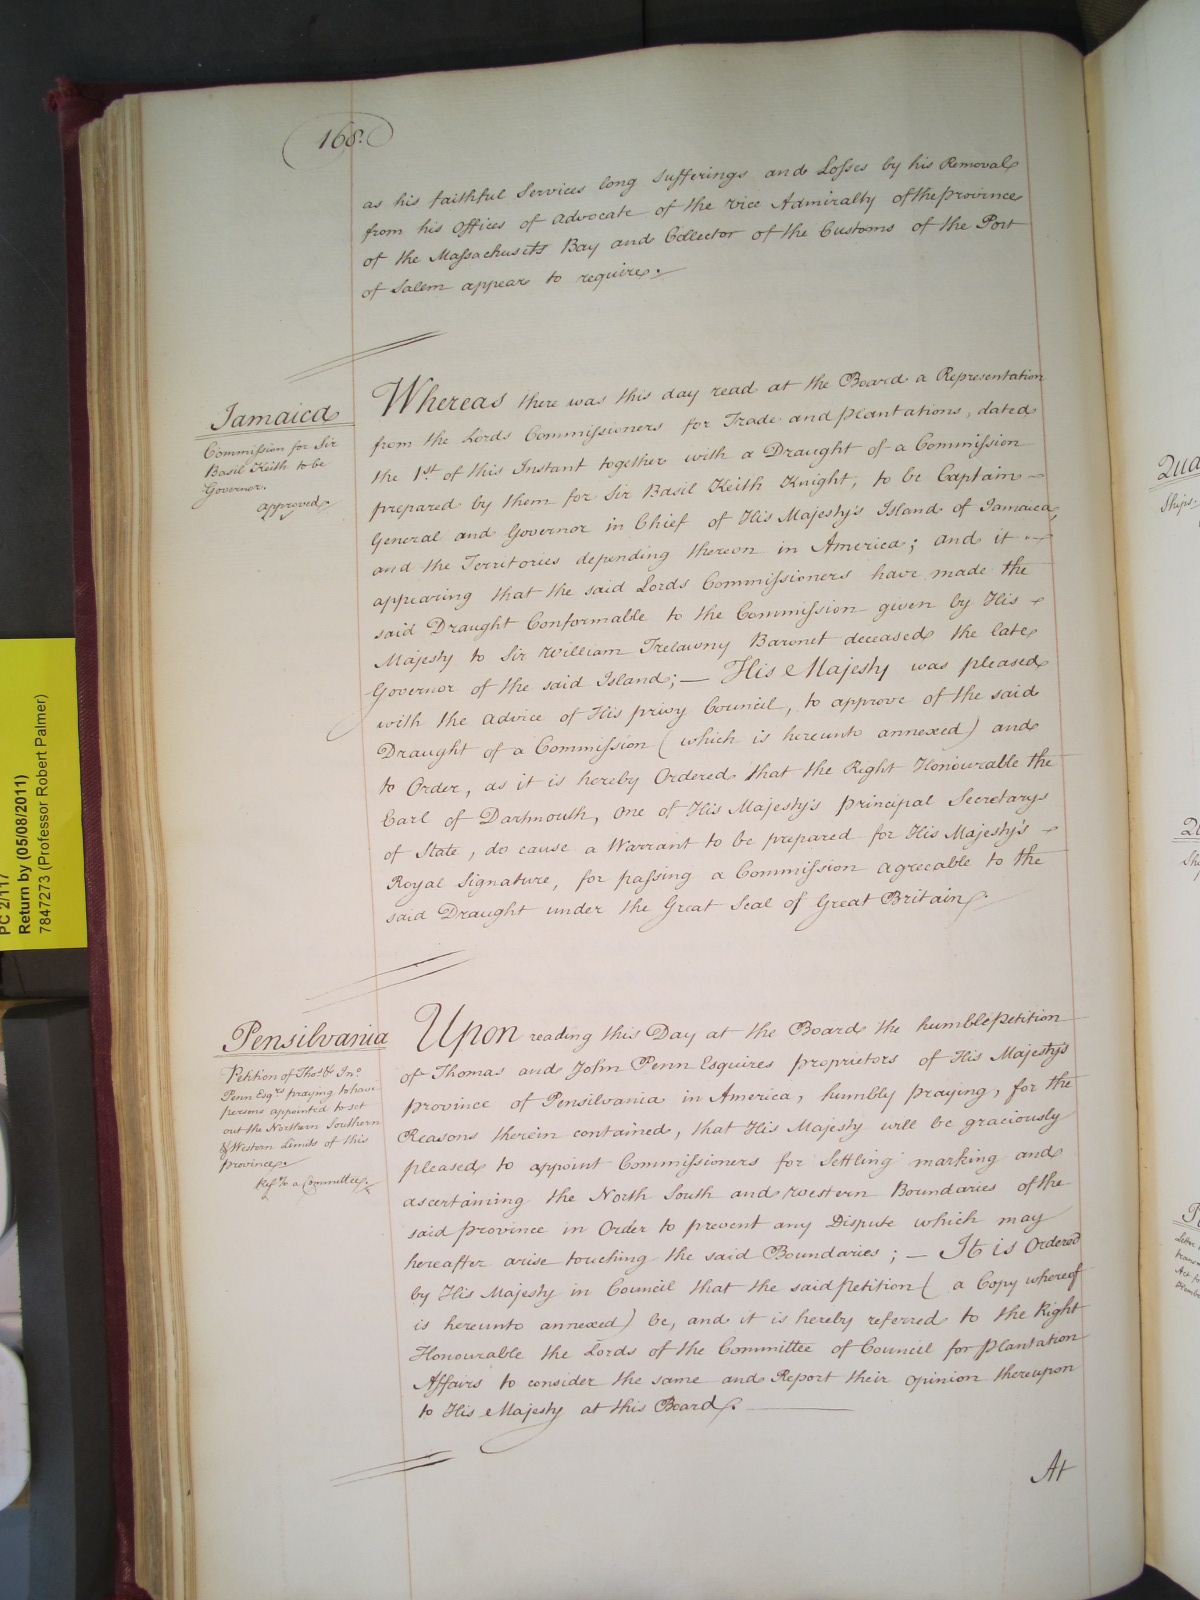 168.
as his faithful Services long Sufferings and Losses by his Removal
from his Offices of Advocate of the Vice Admiralty of the Province
of the Massachusets Bay and Collector of the Customs of the Port
of Salem appear to require.
Jamaica
Commission for Sir
Basil Keith to be
Governor.
approved
Whereas there was this day read at the Board a Representation
from the Lords Commissioners for Trade and plantations, dated
the 1st. of this Instant together with a Draught of a Commission
prepared by them for Sir Basil Keith Knight, to be Captain
General and Governor in Chief of His Majesty's Island of Jamaica,
and the Territories depending thereon in America; and it
appearing that the said Lords Commissioners have made the
said Draught Conformable to the Commission given by His
Majesty to Sir William Trelawny Baronet deceased the late
Governor of the said Island; — His Majesty was pleased
with the advice of His privy Council, to approve of the said
Draught of a Commission (which is hereunto annexed) and
to Order, as it is hereby Ordered that the Right Honourable the
Earl of Dartmouth, One of His Majesty's principal Secretarys
of State, do cause a Warrant to be prepared for His Majesty's
Royal Signature, for passing a Commission agreeable to the
said Draught under the Great Seal of Great Britain.
Pensilvania
Petition of Thos. & Jno.
Penn Esqrs. praying to have
persons appointed to set
out the Northern Southern
& Western Limits of this
province.
Ref'd. to a Committee.
Upon reading this Day at the Board the humble Petition
of Thomas and John Penn Esquires proprietors of His Majesty's
province of Pensilvania in America, humbly praying, for the
Reasons therein contained, that His Majesty will be graciously
pleased to appoint Commissioners for Settling marking and
ascertaining the North South and Western Boundaries of the
said province in Order to prevent any Dispute which may
hereafter arise touching the said Boundaries; — It is Ordered
by His Majesty in Council that the said petition (a Copy whereof
is hereunto annexed) be, and it is hereby referred to the Right
Honourable the Lords of the Committee of Council for plantation
Affairs to consider the same and Report their opinion thereupon
to His Majesty at this Board.
At
PC 2/117
Return by (05/08/2011)
7847273 (Professor Robert Palmer)
Ships